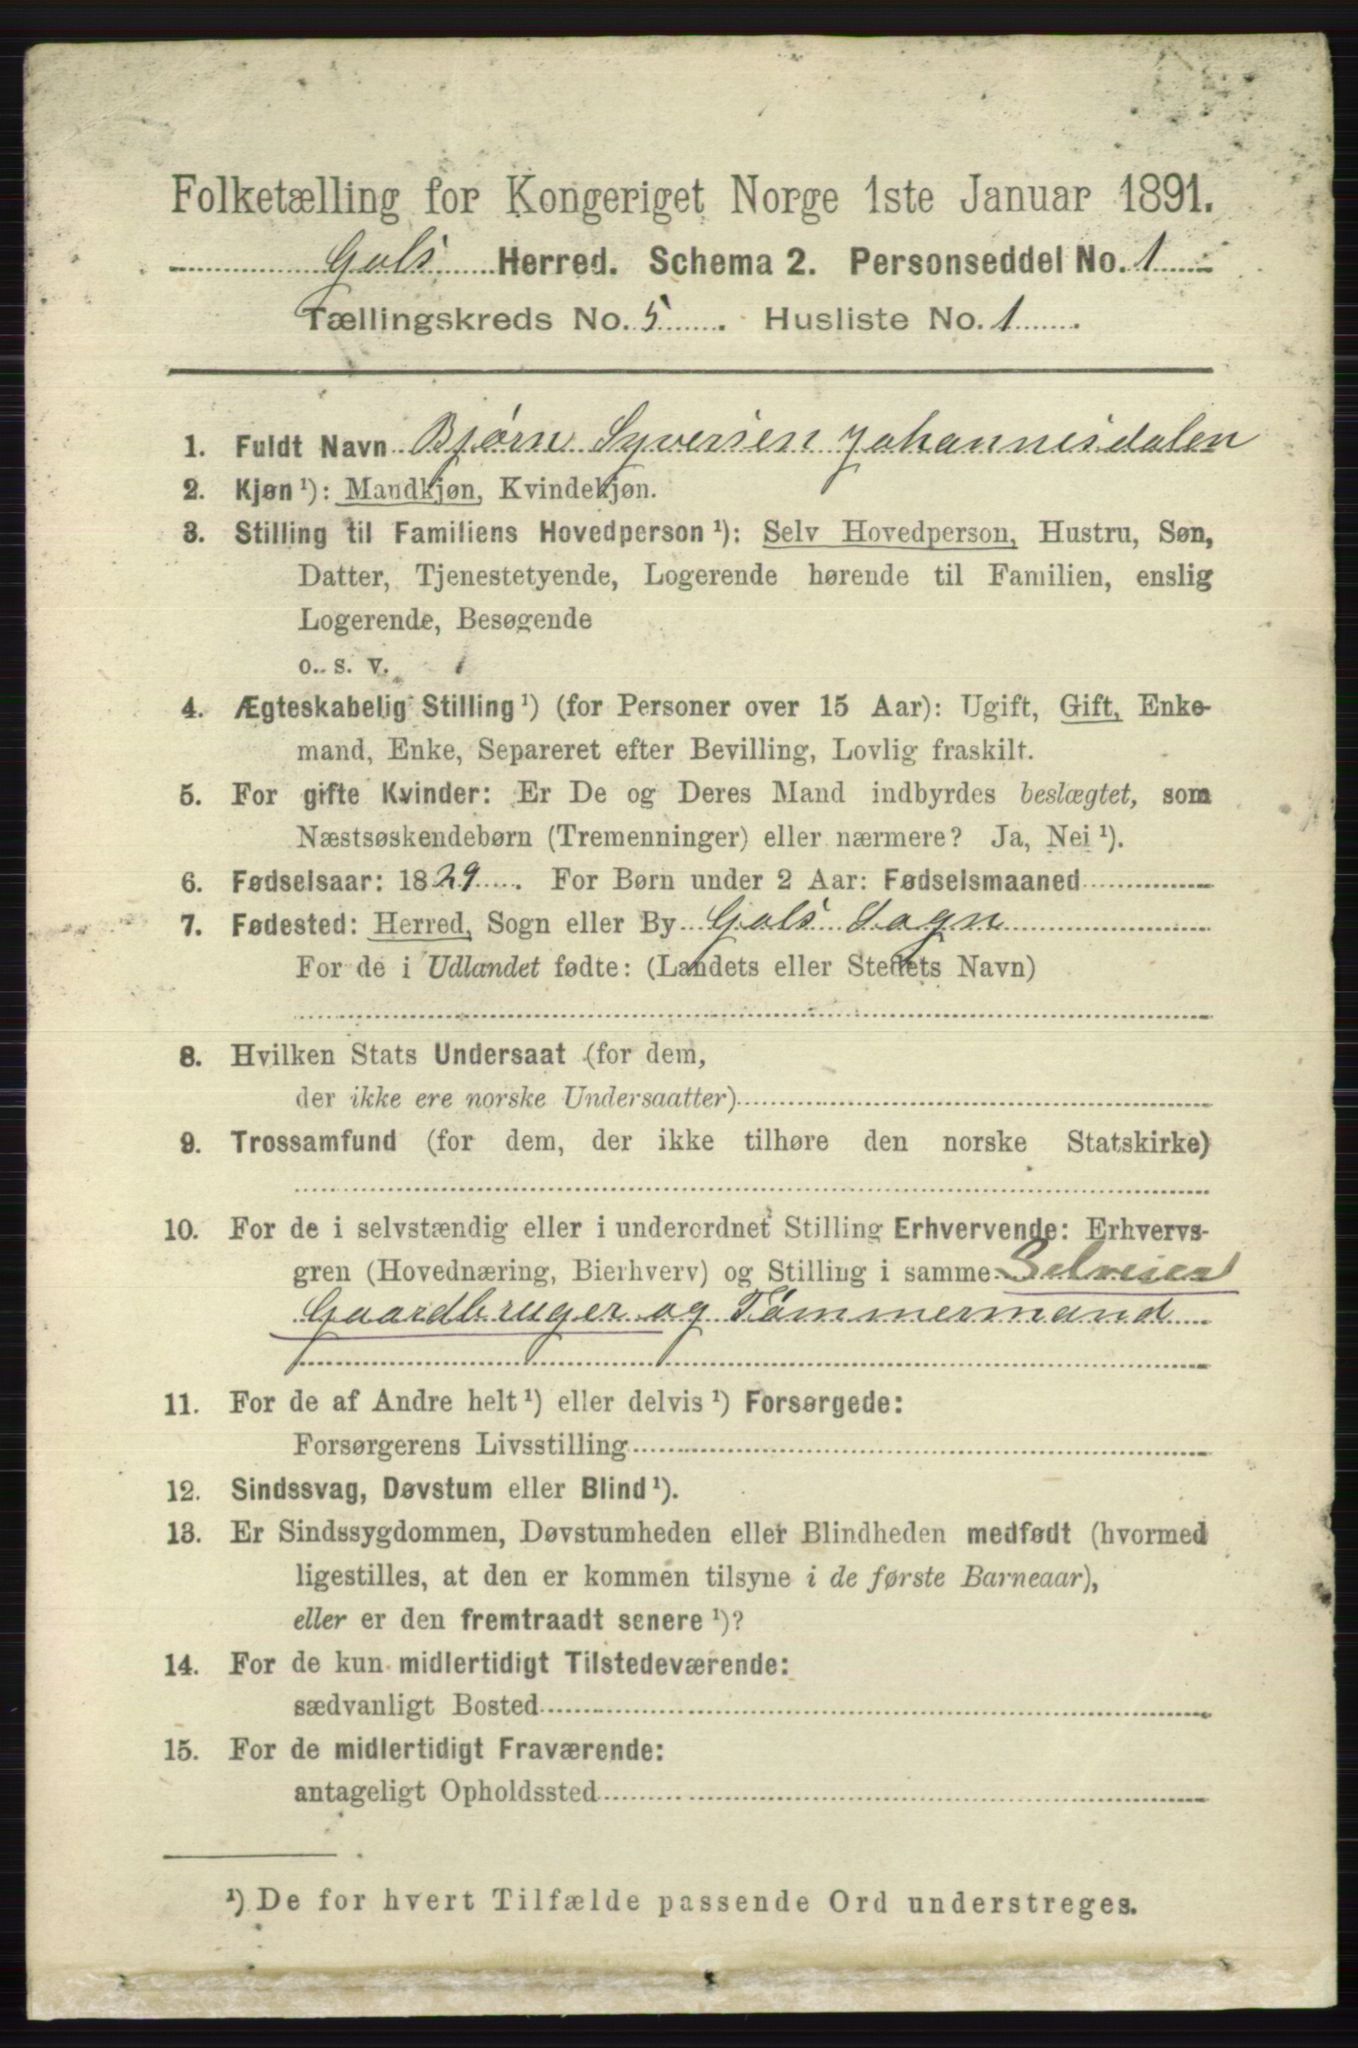 Folketælling for Kongeriget Norge 1ste Januar 1891.
Gols Herred. Schema 2. Personseddel No. 1
Tællingskreds No. 5. Husliste No. 1
1. Fuldt Navn Bjørn Syversen Johannisdalen
2. Kjøn ¹): Mandkjøn, Kvindekjøn.
3. Stilling til Familiens Hovedperson ¹): Selv Hovedperson, Hustru, Søn,
Datter, Tjenestetyende, Logerende hørende til Familien, enslig
Logerende, Besøgende
o. s. v.
4. Ægteskabelig Stilling ¹) (for Personer over 15 Aar): Ugift, Gift, Enke-
mand, Enke, Separeret efter Bevilling, Lovlig fraskilt.
5. For gifte Kvinder: Er De og Deres Mand indbyrdes beslægtet, som
Næstsøskendebørn (Tremenninger) eller nærmere? Ja, Nei ¹).
6. Fødselsaar: 1829. For Børn under 2 Aar: Fødselsmaaned
7. Fødested: Herred, Sogn eller By Gols Sogn
For de i Udlandet fødte: (Landets eller Stedets Navn)
8. Hvilken Stats Undersaat (for dem,
der ikke ere norske Undersaatter)
9. Trossamfund (for dem, der ikke tilhøre den norske Statskirke)
10. For de i selvstændig eller i underordnet Stilling Erhvervende: Erhvervs-
gren (Hovednæring, Bierhverv) og Stilling i samme Selveier
Gaardbruger og Tømmermand
11. For de af Andre helt ¹) eller delvis ¹) Forsørgede:
Forsørgerens Livsstilling
12. Sindssvag, Døvstum eller Blind ¹).
13. Er Sindssygdommen, Døvstumheden eller Blindheden medfødt (hvormed
ligestilles, at den er kommen tilsyne i de første Barneaar),
eller er den fremtraadt senere ¹)?
14. For de kun midlertidigt Tilstedeværende:
sædvanligt Bosted
15. For de midlertidigt Fraværende:
antageligt Opholdssted
¹) De for hvert Tilfælde passende Ord understreges.